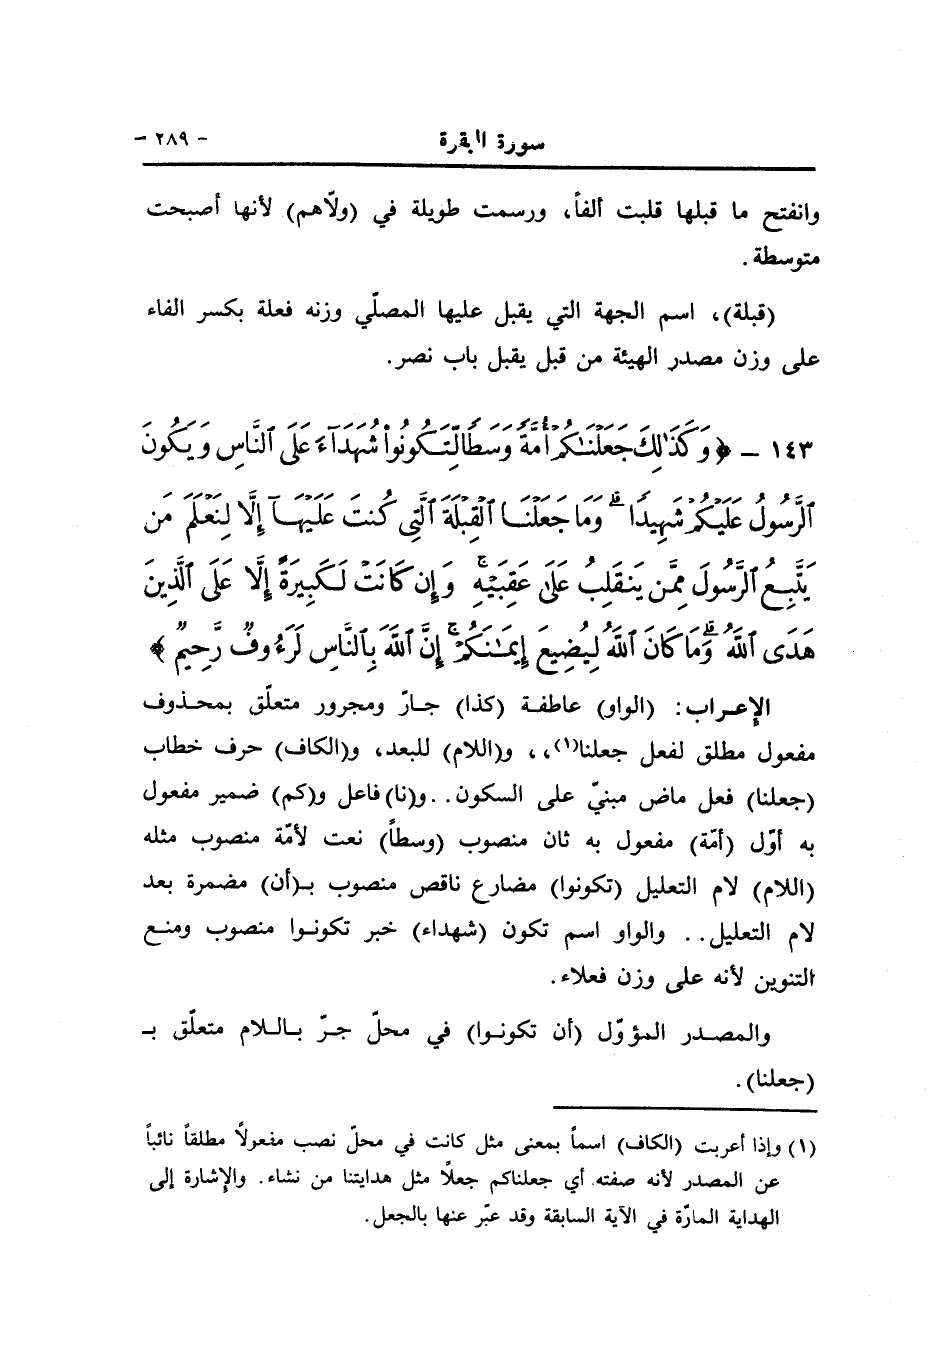 سورة البقرة - ٢٨٩ -
وانفتح ما قبلها قلبت ألفاً، ورسمت طويلة في (ولاّهم) لأنها أصبحت
متوسطة .
(قبلة)، اسم الجهة التي يقبل عليها المصلّي وزنه فعلة بكسر الفاء
على وزن مصدر الهيئة من قبل يقبل باب نصر.
١٤٣ - ﴿وَكَذَٰلِكَ جَعَلْنَٰكُمْ أُمَّةً وَسَطًا لِّتَكُونُوا۟ شُهَدَآءَ عَلَى ٱلنَّاسِ وَيَكُونَ
ٱلرَّسُولُ عَلَيْكُمْ شَهِيدًا ۗ وَمَا جَعَلْنَا ٱلْقِبْلَةَ ٱلَّتِى كُنتَ عَلَيْهَآ إِلَّا لِنَعْلَمَ مَن
يَتَّبِعُ ٱلرَّسُولَ مِمَّن يَنقَلِبُ عَلَىٰ عَقِبَيْهِ ۚ وَإِن كَانَتْ لَكَبِيرَةً إِلَّا عَلَى ٱلَّذِينَ
هَدَى ٱللَّهُ ۗ وَمَا كَانَ ٱللَّهُ لِيُضِيعَ إِيمَٰنَكُمْ ۚ إِنَّ ٱللَّهَ بِٱلنَّاسِ لَرَءُوفٌ رَّحِيمٌ﴾
الإعراب: (الواو) عاطفة (كذا) جارّ ومجرور متعلّق بمحذوف
مفعول مطلق لفعل جعلنا(١)،، و(اللام) للبعد، و(الكاف) حرف خطاب
(جعلنا) فعل ماض مبنيّ على السكون. .و(نا) فاعل و(كم) ضمير مفعول
به أوّل (أمّة) مفعول به ثان منصوب (وسطاً) نعت لأمّة منصوب مثله
(اللام) لام التعليل (تكونوا) مضارع ناقص منصوب بـ(أن) مضمرة بعد
لام التعليل. . والواو اسم تكون (شهداء) خبر تكونوا منصوب ومنع
التنوين لأنه على وزن فعلاء.
والمصدر المؤوّل (أن تكونوا) في محلّ جرّ باللام متعلّق بـ
(جعلنا).
(١) وإذا أعربت (الكاف) اسماً بمعنى مثل كانت في محلّ نصب مفعولاً مطلقاً نائباً
عن المصدر لأنه صفته. أي جعلناكم جعلًا مثل هدايتنا من نشاء. والإشارة إلى
الهداية المارّة في الآية السابقة وقد عبّر عنها بالجعل.